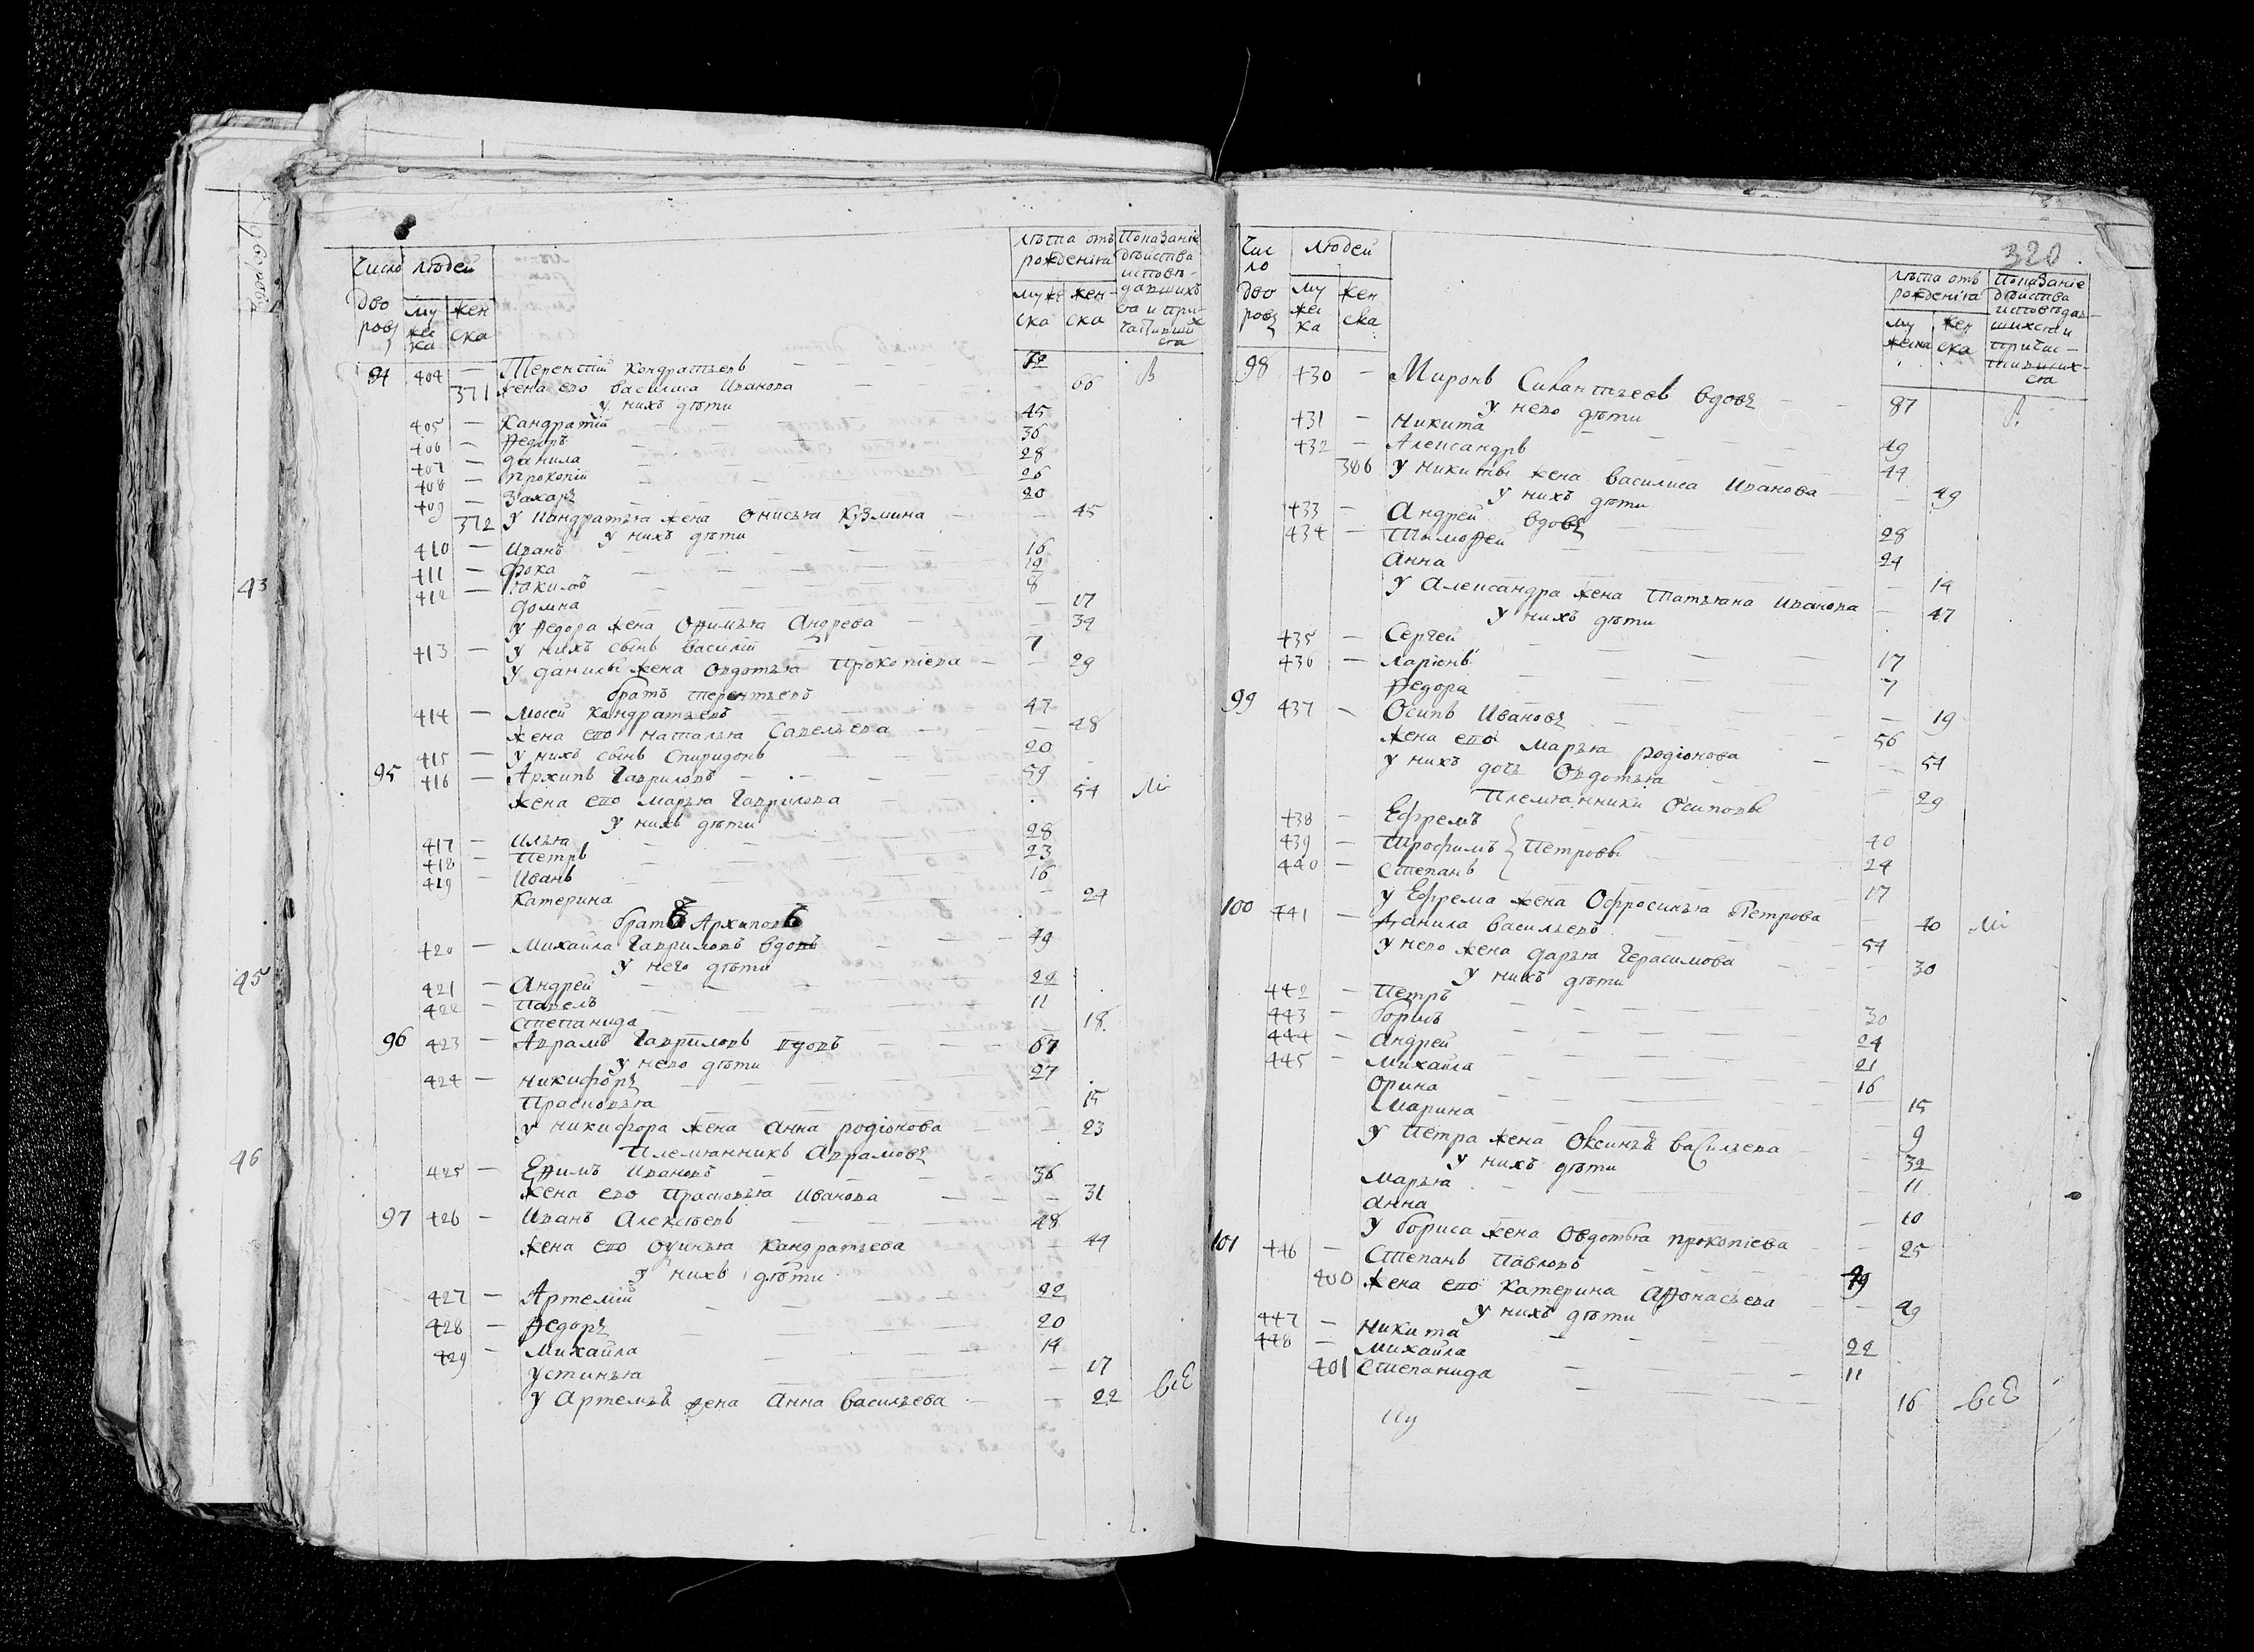 Число дворовъ
людей
мужеска
женска
лѣта отъ рожденія
мужеска
женска
Показаніе дѣйства исповѣдавшихся и причастившихся
94 404 — Терентій Кондратьевъ 72
371 жена ево василиса Иванова 66
у нихъ дѣти
405 — Кандратій 45
406 — Ѳедоръ 36
407 — данила 28
408 — Прокопій 26
409 — Захаръ 20
372 у Кандратья жена Онисья Кузмина 45
у нихъ дѣти
410 — Иванъ 16
411 — Фока 12
412 — 8
домна 17
у Ѳедора жена Офимья Андрева 39
413 — у нихъ сынъ василій 7
у данилы жена Овдотья Прокопіева 29
братъ терентьевъ
414 — Мосей Кандратьевъ 47
жена ево наталья Савельева 48
415 — у нихъ сынъ Спиридонъ 20
95 416 — Архипъ Гавриловъ 59
жена ево марья Гаврилова 54
у нихъ дѣти
417 — Илья 28
418 — Петръ 23
419 — Иванъ 16
Катерина 24
братъ Архиповъ
420 — Михайла Гавриловъ вдовъ 49
у него дѣти
421 — Андрей 22
422 — Павелъ 11
Степанида 18
96 423 — Аврамъ Гавриловъ вдовъ 67
у нево дѣти
424 — Никифоръ 27
Прасковья 15
у никифора жена Анна родіонова 23
Племянникъ Аврамовъ
425 — Ефимъ Ивановъ 36
жена ево Прасковья Иванова 31
97 426 — Иванъ Алексѣевъ 48
жена ево Кандратьева 44
у нихъ дѣти
427 — Артемій 22
428 — Ѳедоръ 20
429 — Михайла 14
устинья 17
у Артемья жена Анна васильева 22 всѣ
43
45
46
320
Число дворовъ
людей
мужеска
женска
лѣта отъ рожденія
мужеска
женска
Показаніе дѣйства исповѣдавшихся и причастившихся
98 430 — Миронъ Силантьевъ вдовъ 87
у нево дѣти
431 — Никита 49
432 — Александръ 44
386 у никиты жена василиса Иванова 49
у нихъ дѣти
433 — Андрей вдовъ 28
434 — Тимофей 24
Анна 14
у Александра жена Татьяна Иванова 47
у нихъ дѣти
435 — Сергей 17
436 — Ларіонъ 7
Ѳедора 19
99 437 — Осипъ Ивановъ 56
жена ево марья родіонова 54
у нихъ дочь Овдотья 29
Племянники Осиповы
438 — Ефремъ 40
439 — Трофимъ } Петровы 24
440 — Степанъ 17
у Ефрема жена Офросинья Петрова 40
100 441 — Данила васильевъ 54
у нево жена дарья Герасимова 30
у нихъ дѣти
442 — Петръ 30
443 — борисъ 24
444 — Андрей 21
445 — Михайла 16
Орина 15
Марина 9
у Петра жена Оксинья васильева 32
у нихъ дѣти
Марья 11
Анна 10
у бориса жена Овдотья прокопіева 25
101 446 — Степанъ Павловъ 49
400 жена ево Катерина Афонасьева 49
у нихъ дѣти
447 — Никита 22
448 — Михайла 11
401 Степанида 16 всѣ